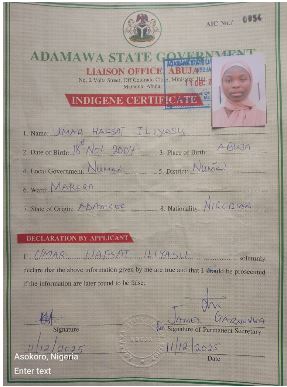 AIC No.: 0954
ADAMAWA STATE GOVERNMENT
LIAISON OFFICE, ABUJA
INDIGENE CERTIFICATE
1. Name: UMAR HAFSAT ILIYASU
2. Date of Birth: 18th Nov 2007 3. Place of Birth: ABUJA
4. Local Government: NUMAN 5. District: NUMAN
6. Ward:
7. State of Origin: 8. Nationality: NIGERIAN
DECLARATION BY APPLICANT
I UMAR HAFSAT ILIYASU solemnly
declare that the above information given by me are true and that I should be prosecuted
if the information are later found to be false.
JAMES
Signature for Signature of Permanent Secretary
11/12/2025 11/12/2025
Date
Asokoro, Nigeria
Enter text